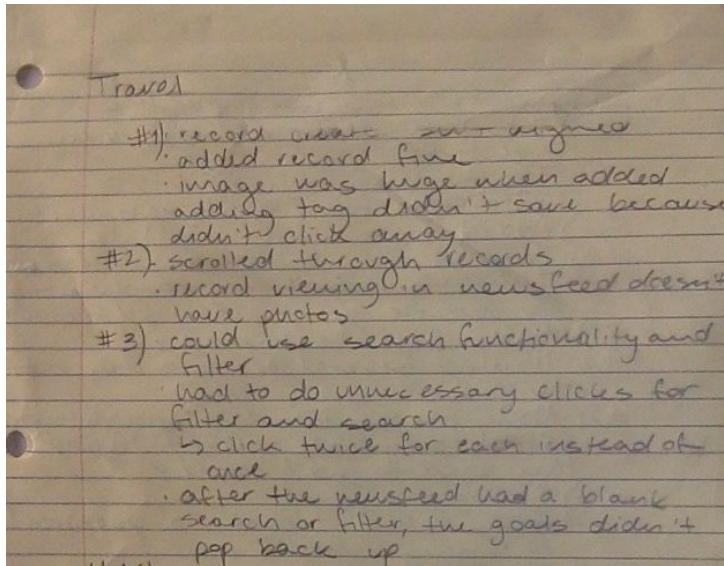 Travel
#1) · record create isn't aligned
· added record fine
· image was huge when added
adding tag didn't save because
didn't click away
#2) · scrolled through records
· record viewing in newsfeed doesn't
have photos
#3) could use search functionality and
filter
· had to do unnecessary clicks for
filter and search
↳ click twice for each instead of
once
· after the newsfeed had a blank
search or filter, the goals didn't
pop back up